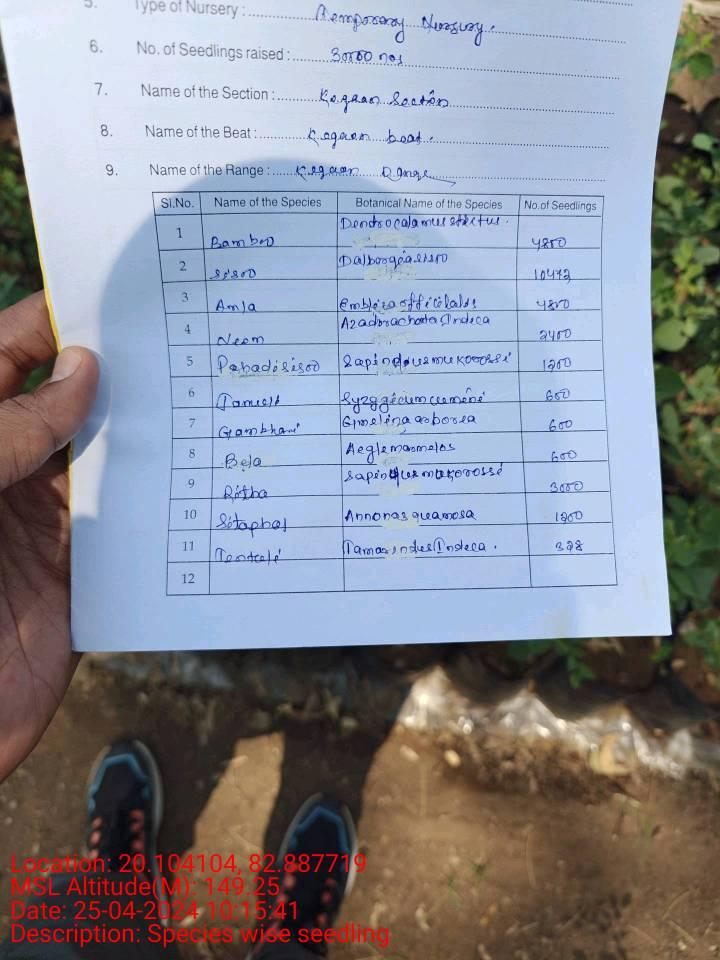 5. Type of Nursery : Temporary Nursury.
6. No. of Seedlings raised : 30000 nos
7. Name of the Section : Kegaon Section
8. Name of the Beat : Kegaon beat.
9. Name of the Range : Kegaon Range
Sl.No. Name of the Species Botanical Name of the Species No.of Seedlings
1 Bamboo Dendrocalamus strictus. 4800
2 Sisoo Dalborgia sisoo 10472
3 Amla embleica officilalis 4800
4 Neem Azadirachata Indeca 2400
5 Pahadi sisoo Sapindus mukorossi 1200
6 Jamu Syzggium cumini 600
7 Gambhari Gmelina arborea 600
8 Bela Aegle marmelos 600
9 Ritha Sapindus mukorossi 3000
10 Sitaphal Annona squamosa 1200
11 Tentuli Tamarindus Indeca. 328
12
Location: 20.104104, 82.887719
MSL Altitude(M): 149.25
Date: 25-04-2024 10:15:41
Description: Species wise seedling